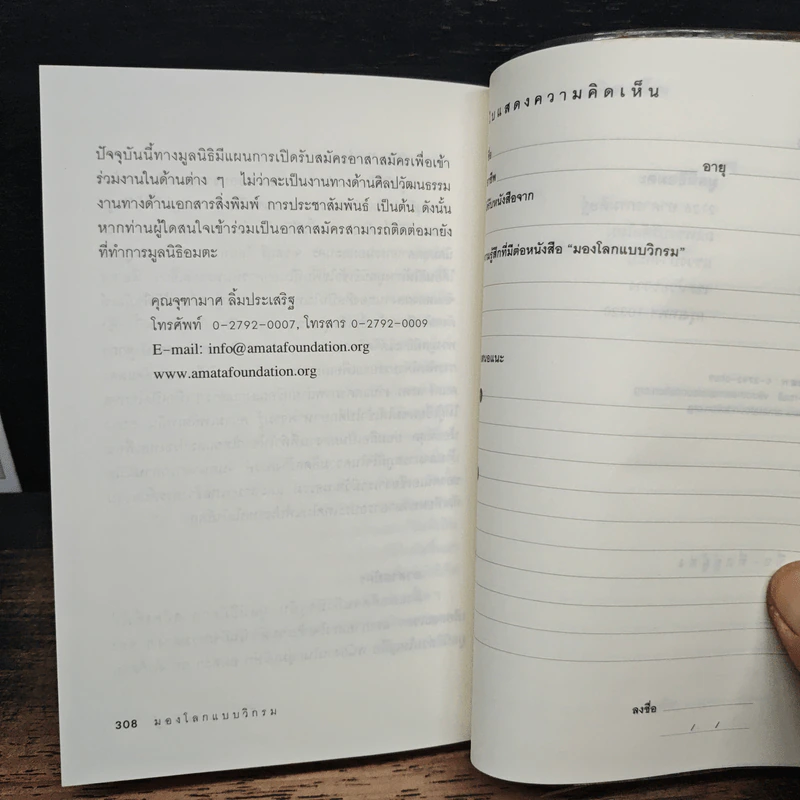 ปัจจุบันนี้ทางมูลนิธิมีแผนการเปิดรับสมัครอาสาสมัครเพื่อเข้า
ร่วมงานในด้านต่าง ๆ ไม่ว่าจะเป็นงานทางด้านศิลปวัฒนธรรม
งานทางด้านเอกสารสิ่งพิมพ์ การประชาสัมพันธ์ เป็นต้น ดังนั้น
หากท่านผู้ใดสนใจเข้าร่วมเป็นอาสาสมัครสามารถติดต่อมายัง
ที่ทำการมูลนิธิอมตะ
คุณจุฑามาศ ลิ้มประเสริฐ
โทรศัพท์ 0-2792-0007, โทรสาร 0-2792-0009
E-mail: info@amatafoundation.org
www.amatafoundation.org
308 มองโลกแบบวิกรม
ใบแสดงความคิดเห็น
อายุ
หนังสือจาก
รู้สึกที่มีต่อหนังสือ “มองโลกแบบวิกรม”
ลงชื่อ
/ /